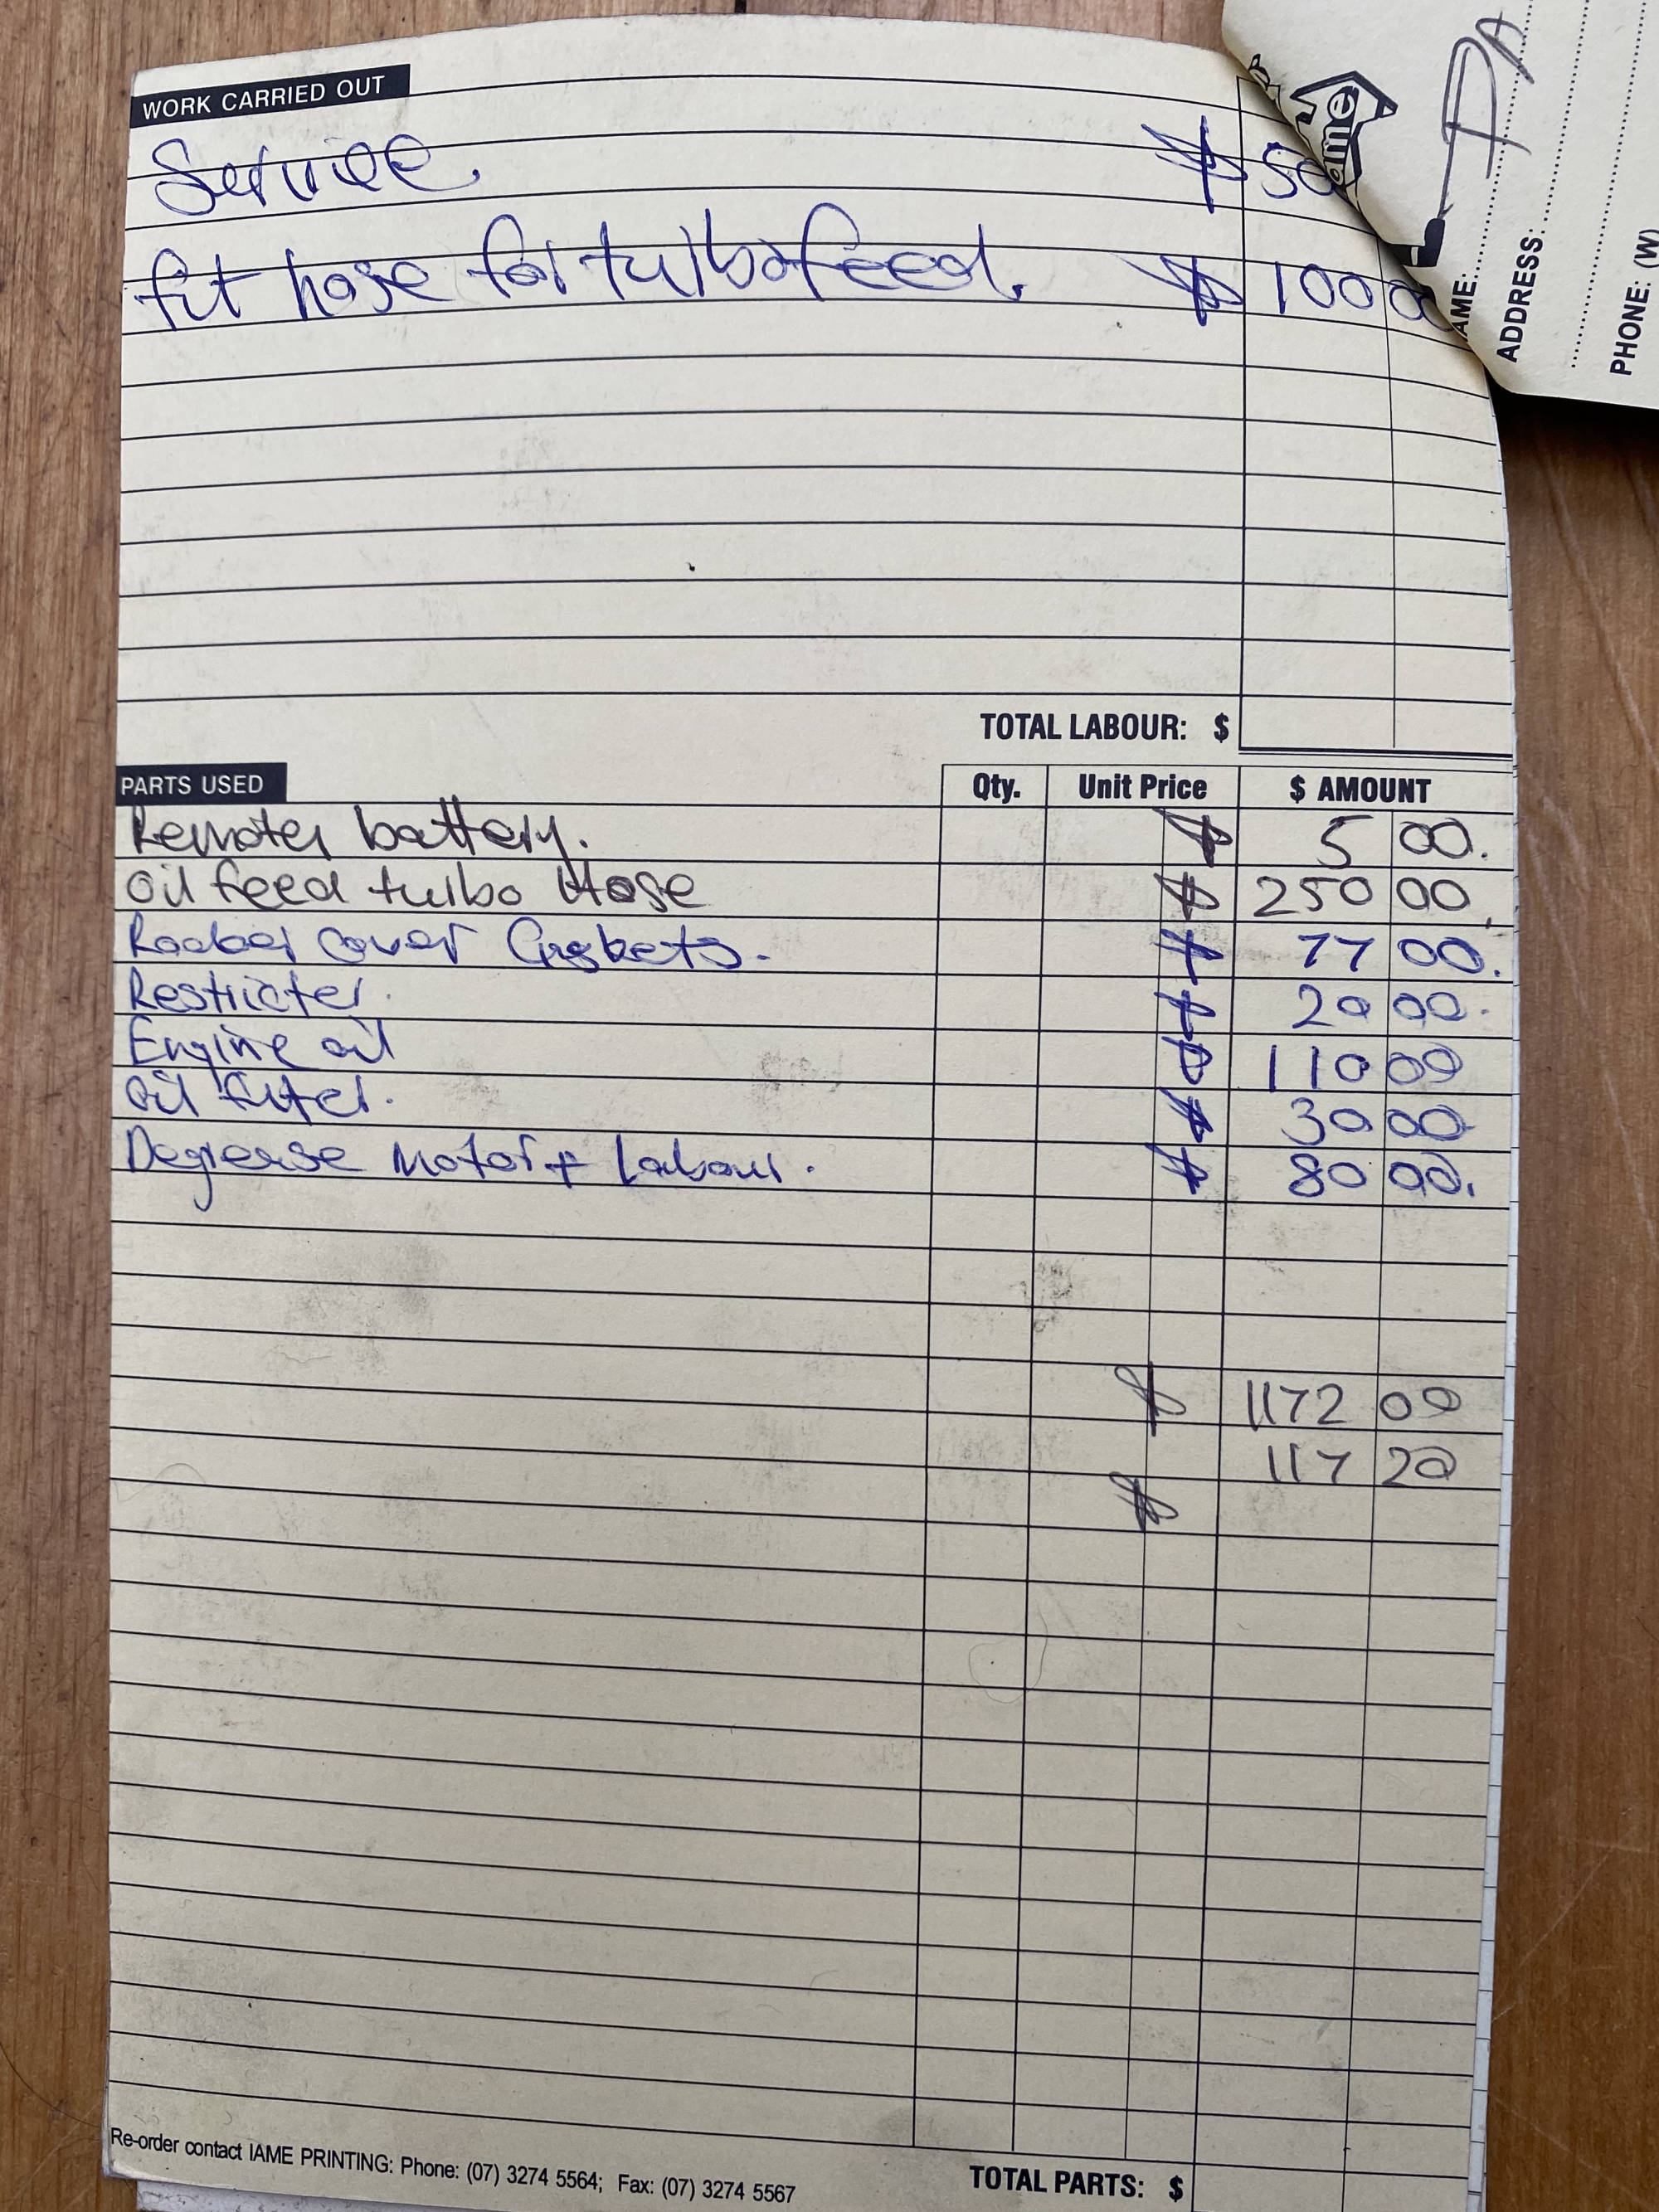 WORK CARRIED OUT
Service. $ 50
fit hose for turbo feed. $ 100 0
TOTAL LABOUR: $
PARTS USED Qty. Unit Price $ AMOUNT
Remoter battery. $ 5 00.
Oil feed turbo Hose $ 250 00
Rocker cover Gaskets. $ 77 00.
Restricter. $ 20 00.
Engine oil $ 110 00
Oil filter. $ 30 00
Degrease Motor + Labour. $ 80 00.
$ 1172 00
117 20
$
Re-order contact IAME PRINTING: Phone: (07) 3274 5564; Fax: (07) 3274 5567
TOTAL PARTS: $
ame
AME:
ADDRESS:
PHONE: (W)